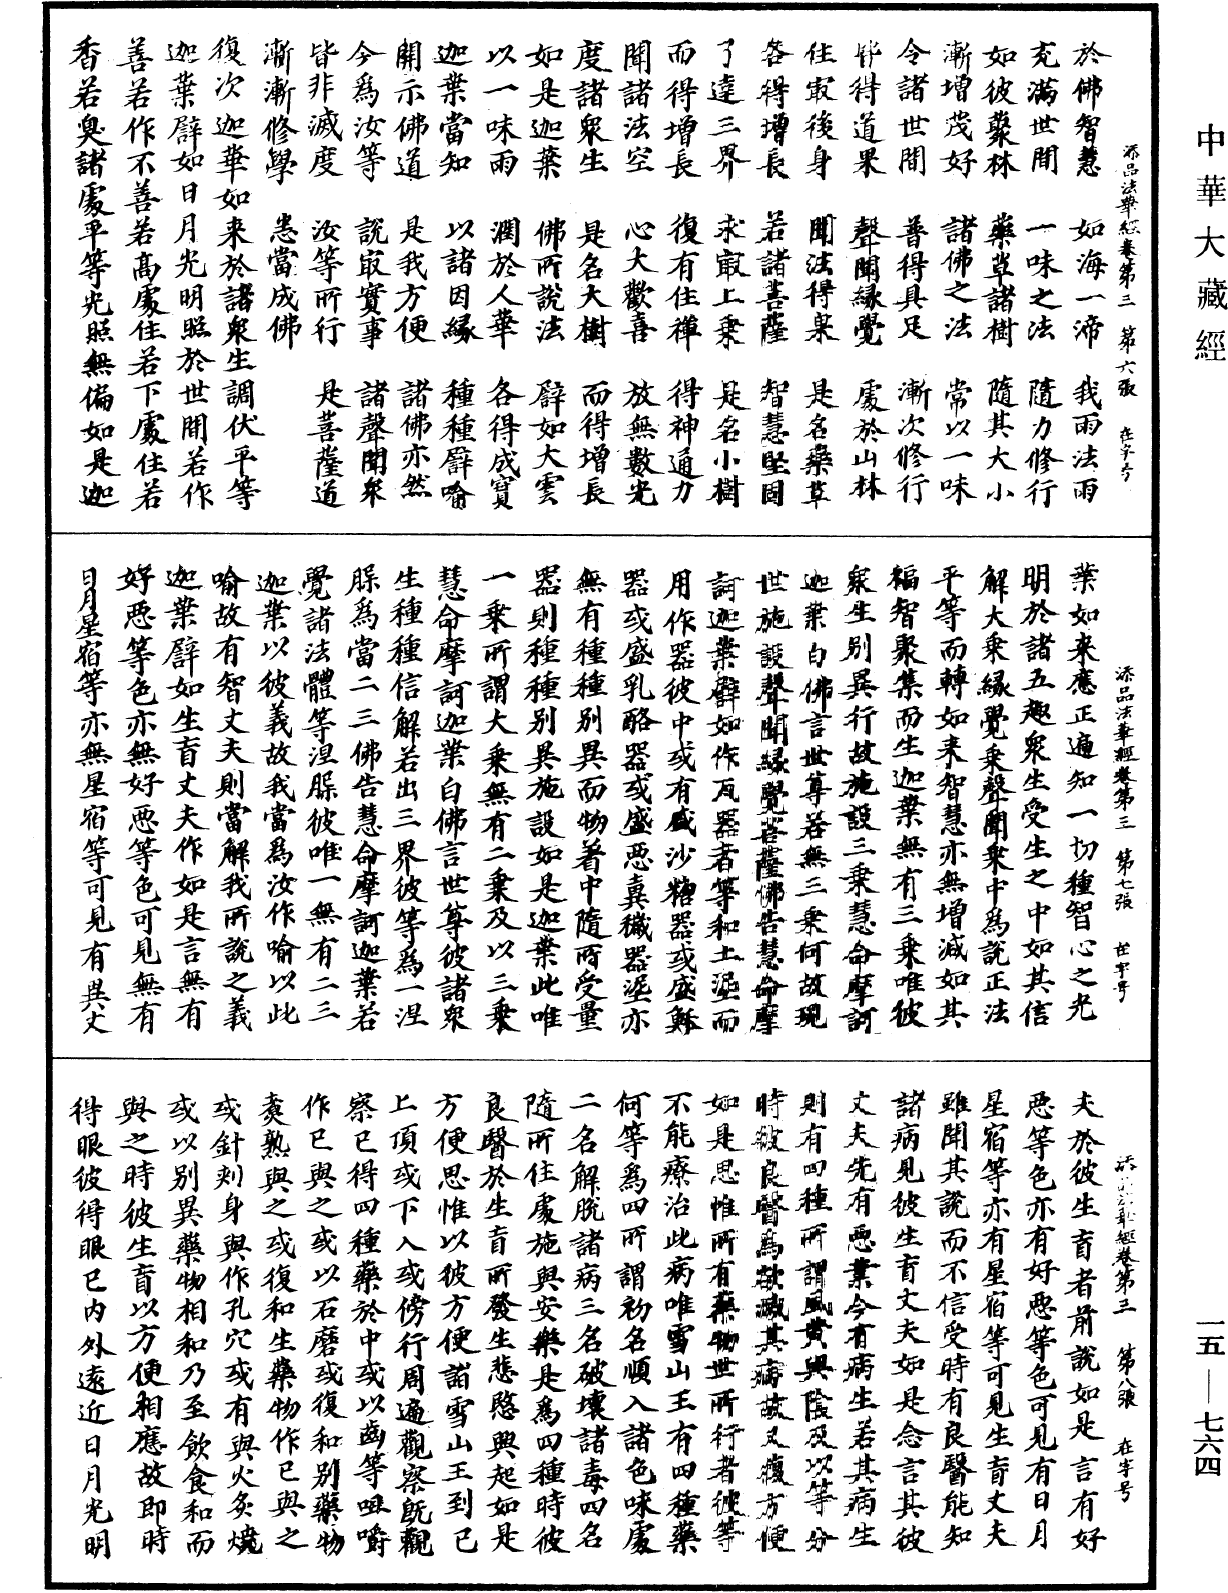 中華大藏經
添品法華經卷第三　第六張　在字号
於佛智慧　如海一渧　我雨法雨
充滿世間　一味之法　隨力修行
如彼藂林　藥草諸樹　隨其大小
漸增茂好　諸佛之法　常以一味
令諸世間　普得具足　漸次修行
皆得道果　聲聞緣覺　處於山林
住㝡後身　聞法得果　是名藥草
各得增長　若諸菩薩　智慧堅固
了達三界　求㝡上乘　是名小樹
而得增長　復有住禪　得神通力
聞諸法空　心大歡喜　放無數光
度諸衆生　是名大樹　而得增長
如是迦葉　佛所說法　譬如大雲
以一味雨　潤於人華　各得成實
迦葉當知　以諸因緣　種種譬喻
開示佛道　是我方便　諸佛亦然
今爲汝等　說㝡實事　諸聲聞衆
皆非滅度　汝等所行　是菩薩道
漸漸修學　悉當成佛
復次迦葉如來於諸衆生調伏平等
迦葉譬如日月光明照於世間若作
善若作不善若高處住若下處住若
香若臭諸處平等光照無偏如是迦
添品法華經卷第三　第七張　在字号
葉如來應正遍知一切種智心之光
明於諸五趣衆生受生之中如其信
解大乘緣覺乘聲聞乘中爲說正法
平等而轉如來智慧亦無增減如其
福智聚集而生迦葉無有三乘唯彼
衆生別異行故施設三乘慧命摩訶
迦葉白佛言世尊若無三乘何故現
世施設聲聞緣覺菩薩佛告慧命摩
訶迦葉譬如作瓦器者等和土埿而
用作器彼中或有盛沙糖器或盛穌
器或盛乳酪器或盛惡糞穢器埿亦
無有種種別異而物著中隨所受量
器則種種別異施設如是迦葉此唯
一乘所謂大乘無有二乘及以三乘
慧命摩訶迦葉白佛言世尊彼諸衆
生種種信解若出三界彼等爲一涅
槃爲當二三佛告慧命摩訶迦葉若
覺諸法體等涅槃彼唯一無有二三
迦葉以彼義故我當爲汝作喻以此
喻故有智丈夫則當解我所說之義
迦葉譬如生盲丈夫作如是言無有
好惡等色亦無好惡等色可見無有
日月星宿等亦無星宿等可見有異丈
添品法華經卷第三　第八張　在字号
夫於彼生盲者前說如是言有好
惡等色亦有好惡等色可見有日月
星宿等亦有星宿等可見生盲丈夫
雖聞其說而不信受時有良醫能知
諸病見彼生盲丈夫如是念言其彼
丈夫先有惡業今有病生若其病生
則有四種所謂風黃與陰及以等分
時彼良醫爲欲滅其病故又復方便
如是思惟所有藥物世所行者彼等
不能療治此病唯雪山王有四種藥
何等爲四所謂初名順入諸色味處
二名解脫諸病三名破壞諸毒四名
隨所住處施與安樂是爲四種時彼
良醫於生盲所發生悲愍興起如是
方便思惟以彼方便詣雪山王到已
上頂或下入或傍行周遍觀察旣觀
察已得四種藥於中或以齒等咀嚼
作已與之或以石磨或復和別藥物
煑熟與之或復和生藥物作已與之
或針刾身與作孔穴或有與火炙燒
或以別異藥物相和乃至飮食和而
與之時彼生盲以方便相應故即時
得眼彼得眼已內外遠近日月光明
一五—七六四